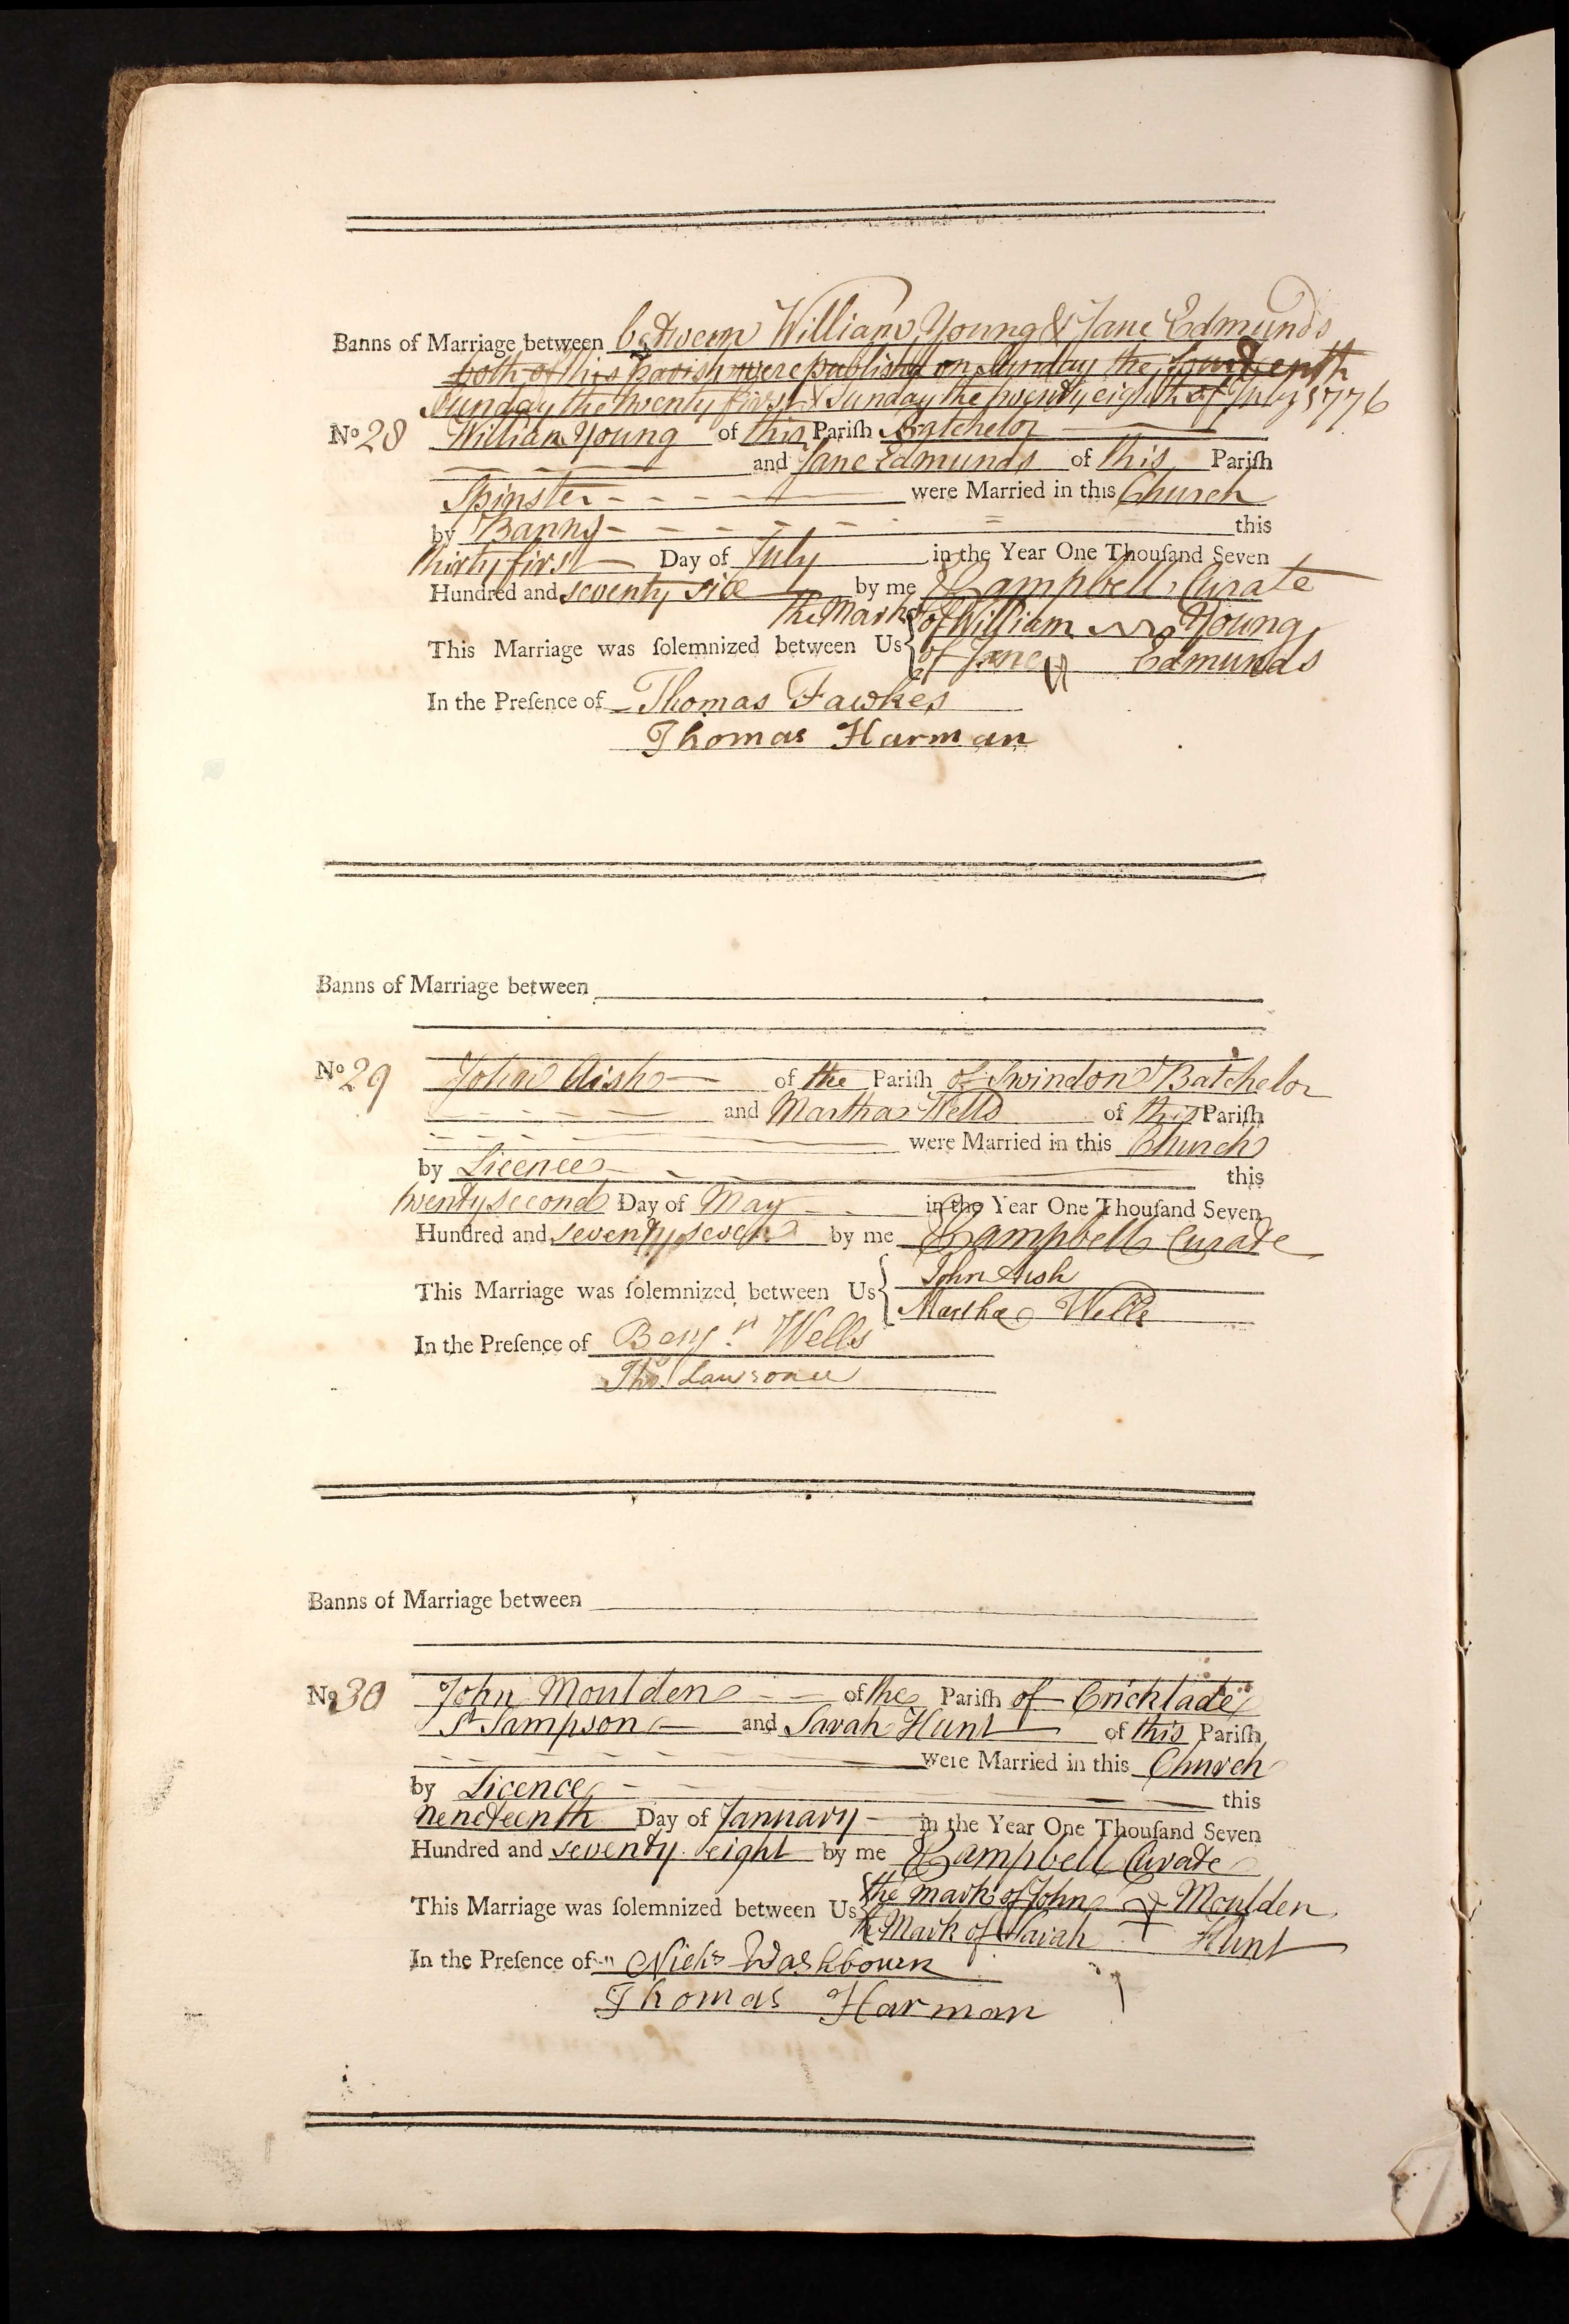 Banns of Marriage between between William Young & Jane Edmunds
both of this parish were publish'd on Sunday the fourteenth
Sunday the twenty first & Sunday the twenty eighth of July 1776
No 28 William Young of this Pariſh Batchelor
and Jane Edmunds of this Pariſh
Spinster were Married in this Church
by Banns this
thirty first Day of July in the Year One Thouſand Seven
Hundred and seventy six by me Campbell Curate
the Mark of William Young
This Marriage was ſolemnized between Us
of Jane Edmunds
In the Preſence of Thomas Fawkes
Thomas Harman
Banns of Marriage between
No 29 John Aish of the Pariſh of Swindon Batchelor
and Martha Wells of this Pariſh
were Married in this Church
by Licence this
twenty second Day of May in the Year One Thouſand Seven
Hundred and seventy seven by me Campbell Curate
John Aish
This Marriage was ſolemnized between Us
Martha Wells
In the Preſence of Benjn Wells
Thos Lawrence
Banns of Marriage between
No 30 John Moulden of the Pariſh of Cricklade
St Sampson and Sarah Hunt of this Pariſh
were Married in this Church
by Licence this
neneteenth Day of January in the Year One Thouſand Seven
Hundred and seventy eight by me Campbell Curate
the mark of John Moulden
This Marriage was ſolemnized between Us
the Mark of Sarah Hunt
In the Preſence of Nichs Washbourn
Thomas Harman